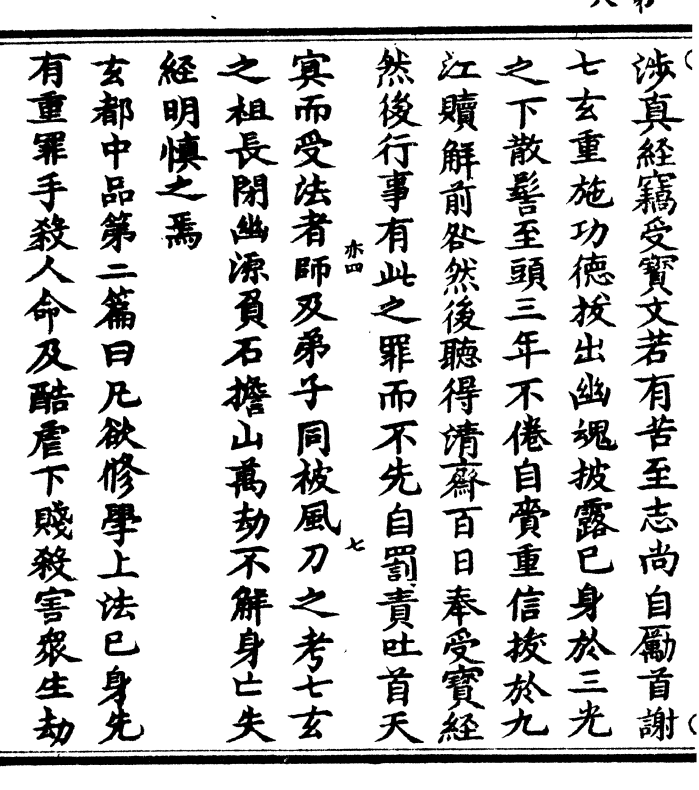 涉真経竊受寶文若有苦至志尚自勵首謝
七玄重施功德拔出幽魂披露已身於三光
之下散髻至頭三年不倦自賫重信投於九
江贖解前咎然後聽得清齋百日奉受寶経
然後行事有此之罪而不先自罰責吐首天
亦四
七
㝠而受法者師及弟子同被風刀之考七玄
之祖長閉幽源負石擔山萬劫不解身亡失
経明慎之焉
玄都中品第二篇曰凡欲修學上法已身先
有重罪手殺人命及酷虐下賤殺害衆生劫